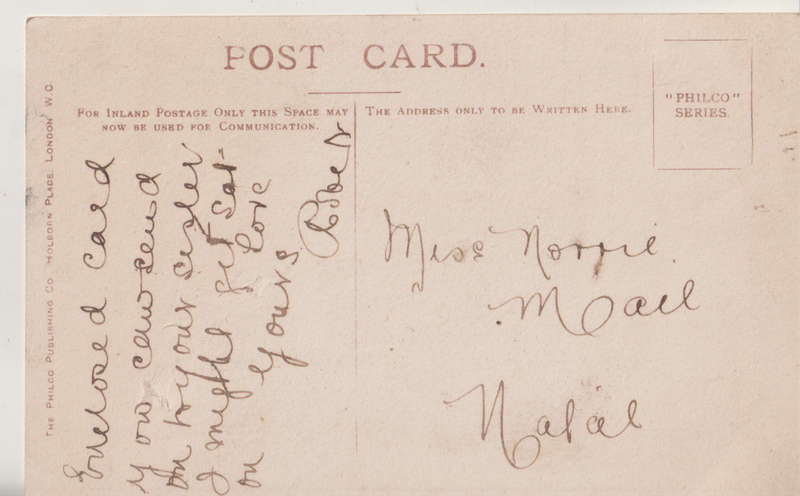 POST CARD.
FOR INLAND POSTAGE ONLY THIS SPACE MAY
NOW BE USED FOR COMMUNICATION.
THE ADDRESS ONLY TO BE WRITTEN HERE.
"PHILCO"
SERIES.
THE PHILCO PUBLISHING CO HOLBORN PLACE, LONDON W.C.
Enclosed card
you can send
on to your sister
I might get
on love
Yours
Robert
Miss Norrie
Mail
Natal